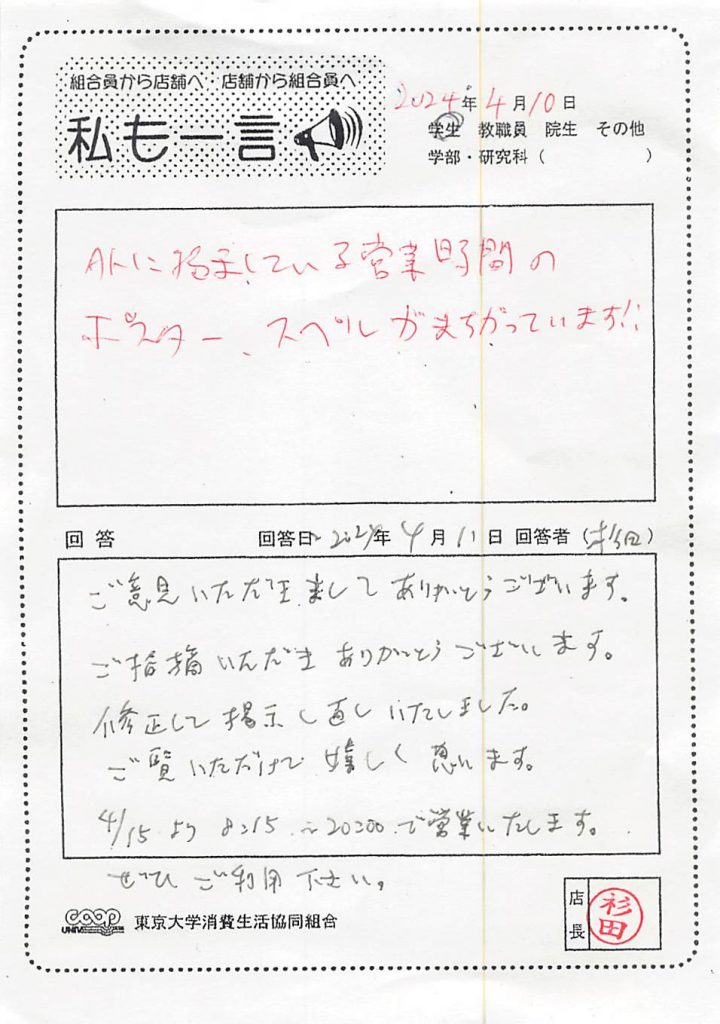 組合員から店舗へ 店舗から組合員へ
私も一言
2024年4月10日
学生 教職員 院生 その他
学部・研究科( )
に掲示している営業時間の
ポスター、スペルがまちがっています!!
回答 回答日 2024年4月11日 回答者(杉田)
ご意見いただきましてありがとうございます。
ご指摘いただきありがとうございます。
修正して掲示し直しいたしました。
ご覧いただけて嬉しく思います。
4/15より 8:15~20:00で営業いたします。
ぜひご利用下さい。
COOP
UNIV
東京大学消費生活協同組合
店長
杉田